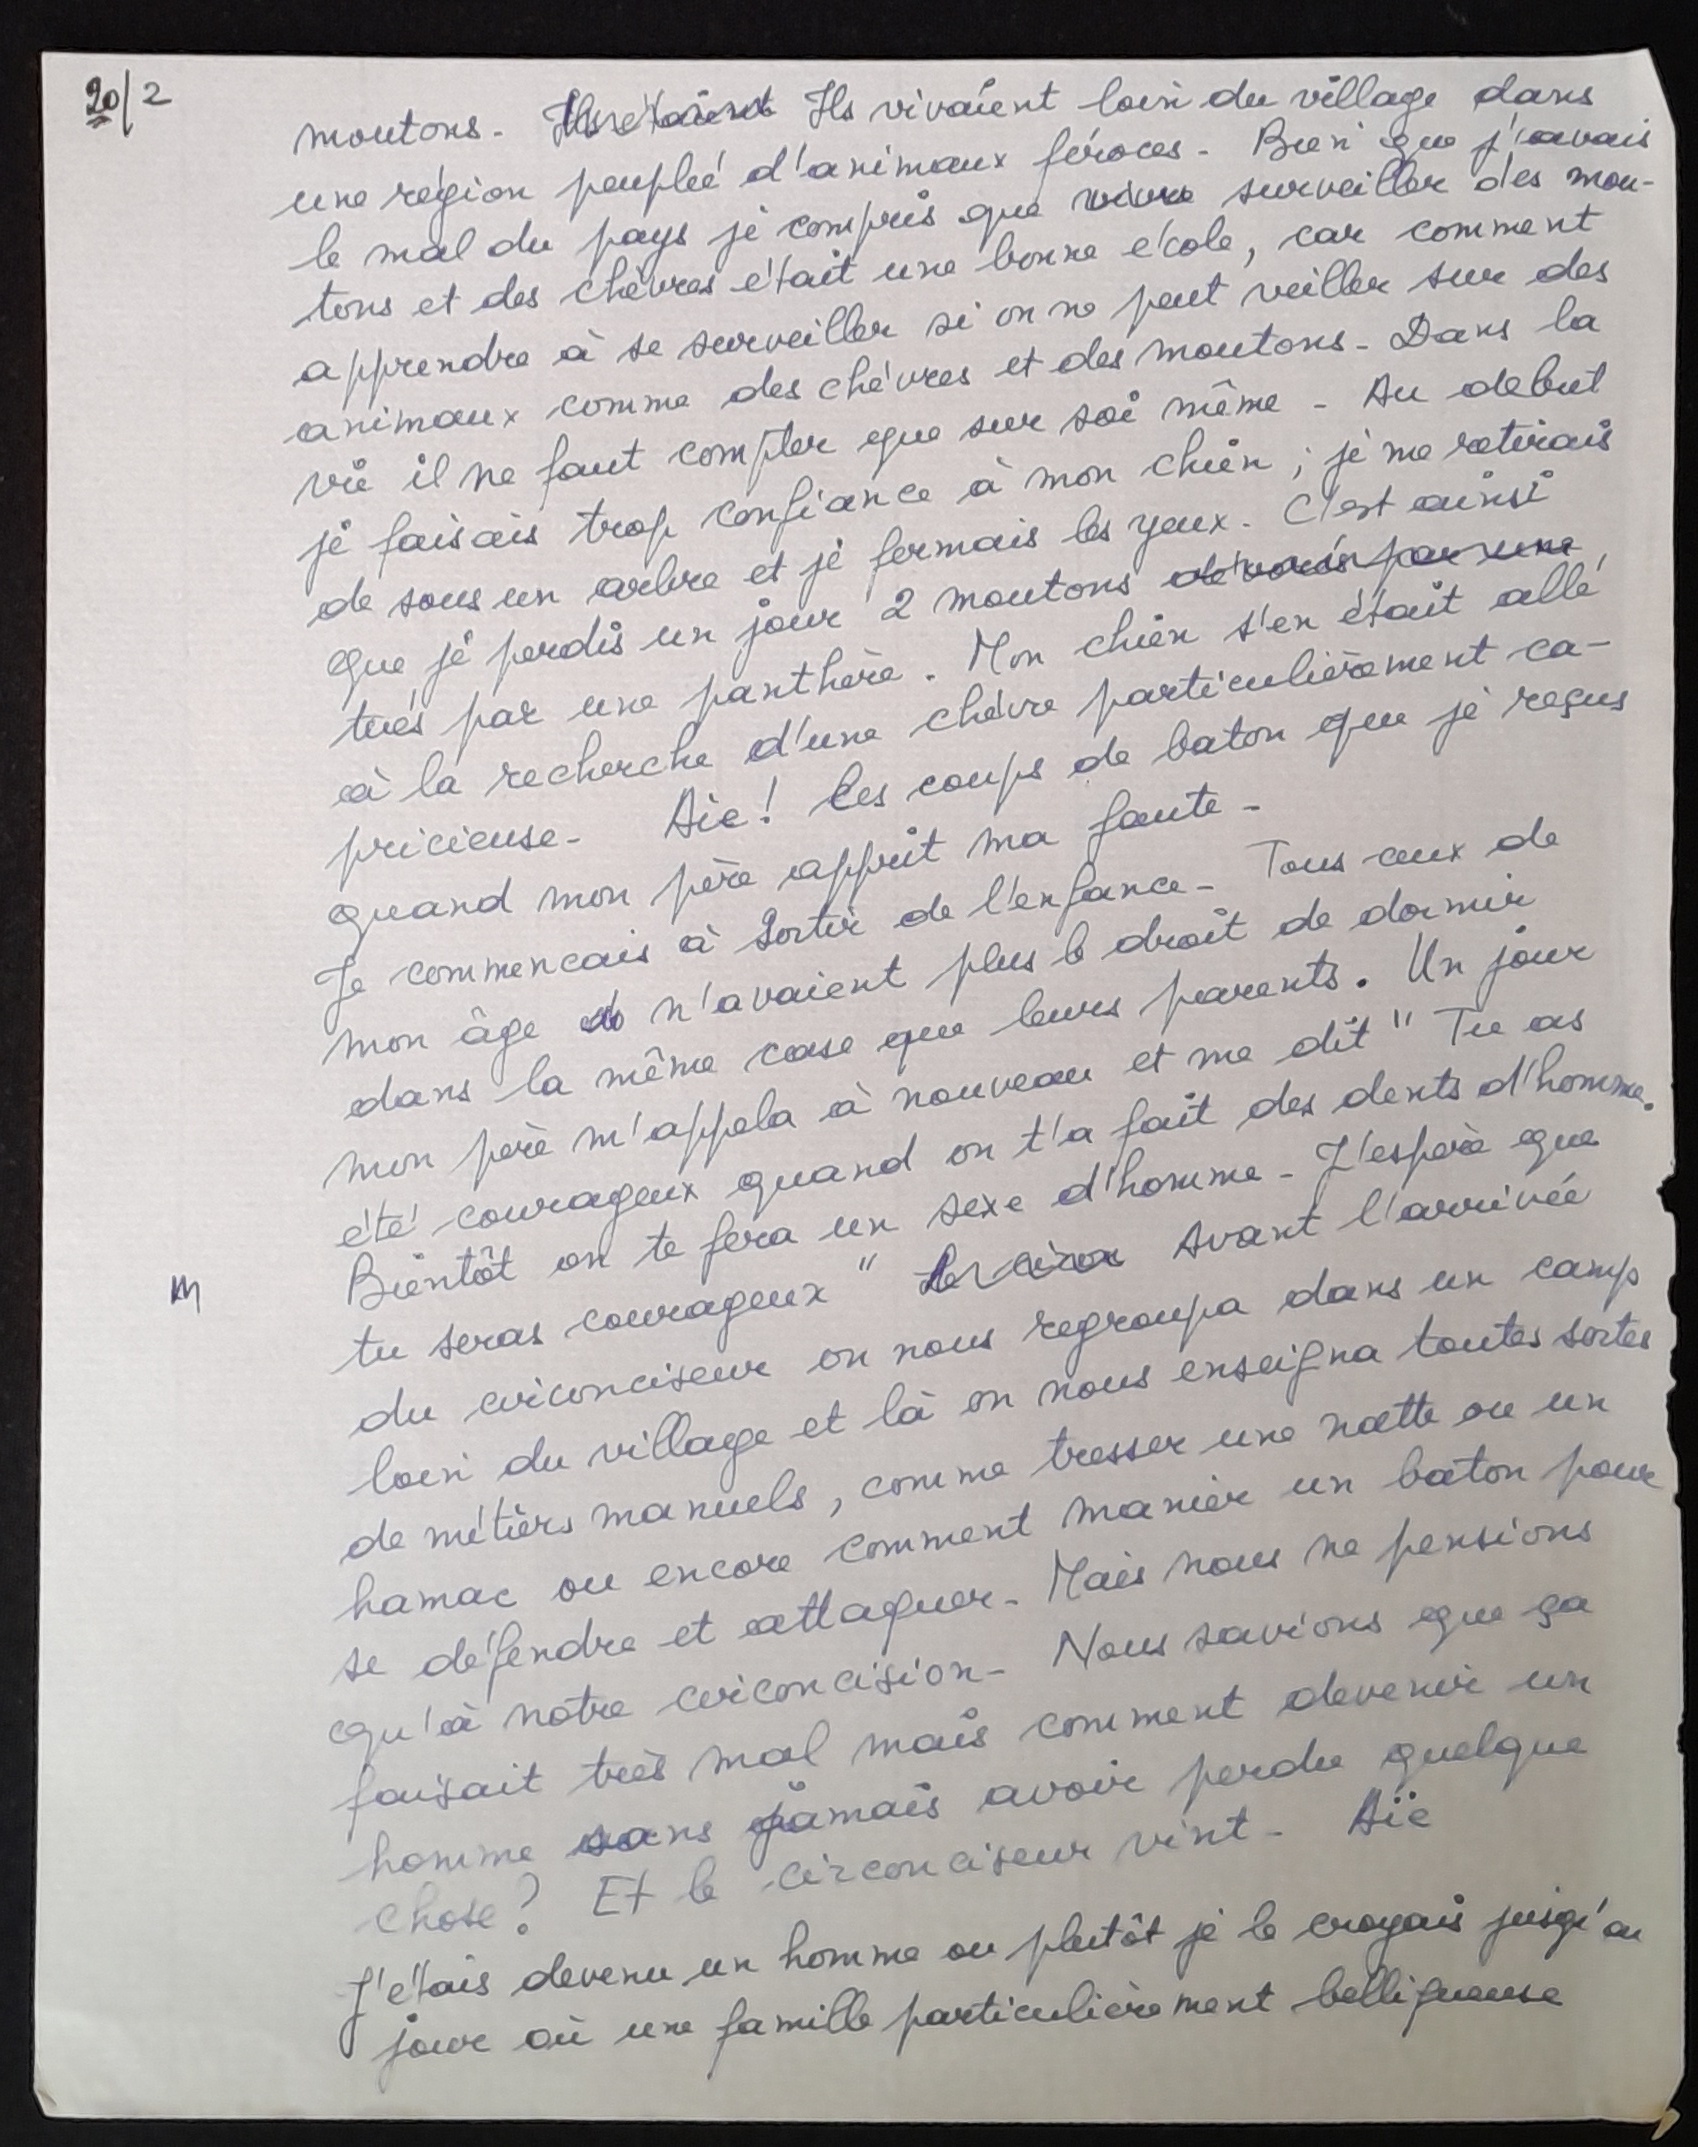 20/2
moutons - Ils étaient Ils vivaient loin du village dans
une région peuplée d'animaux féroces - Bien que j'avais
le mal du pays je compris que vivre surveiller des mou-
tons et des chèvres était une bonne école, car comment
apprendre à se surveiller si on ne peut veiller sur des
animaux comme des chèvres et des moutons - Dans la
vie il ne faut compter que sur soi même - Au debut
je faisais trop confiance à mon chien ; je me retirais
de sous un arbre et je fermais les yeux. C'est ainsi
que je perdis un jour 2 moutons dévorés par une
tués par une panthère. Mon chien s'en était allé
à la recherche d'une chèvre particulièrement ca-
pricieuse - Aie ! les coups de baton que je reçus
quand mon père apprit ma faute -
Je commencais à sortir de l'enfance - Tous ceux de
mon âge n'avaient plus le droit de dormir
dans la même case que leurs parents. Un jour
mon père m'appela à nouveau et me dit " Tu as
été courageux quand on t'a fait des dents d'homme.
Bientôt on te fera un sexe d'homme - J'espère que
tu seras courageux " Avant l'arrivée
du circonciseur on nous regroupa dans un camp
loin du village et là on nous enseigna toutes sortes
de métiers manuels, comme tresser une natte ou un
hamac ou encore comment manier un bâton pour
se défendre et attaquer - Mais nous ne pensions
qu'à notre circoncision - Nous savions que ça
faisait très mal mais comment devenir un
homme sans jamais avoir perdu quelque
chose ? Et le circonciseur vint - Aïe
J'étais devenu un homme ou plutôt je le croyais jusqu'au
jour où une famille particulièrement belligueuse